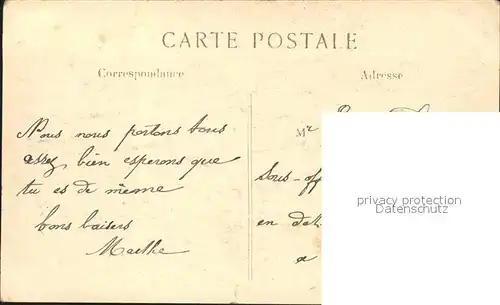 CARTE POSTALE
Correspondance
Adresse
Nous nous portons tous
assez bien esperons que
tu es de même
bons baisers
Marthe
Mr
Sous-off
en dét
a
privacy protection
Datenschutz